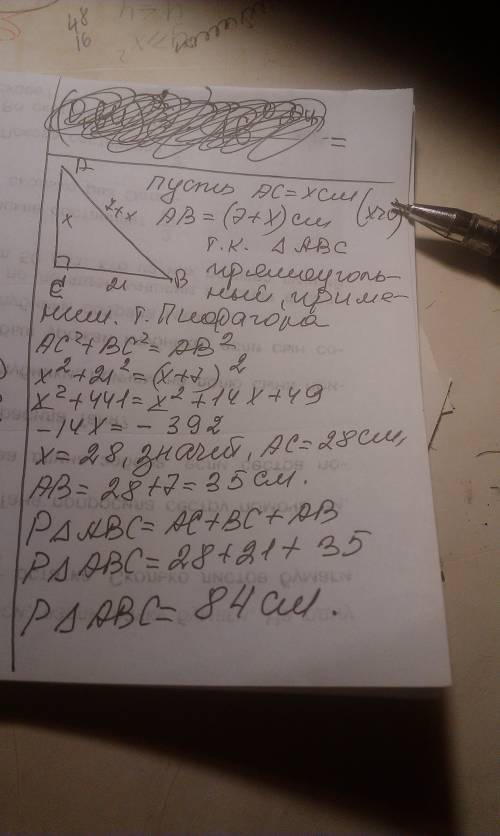 48
16
=
A
x
7+x
C
21
B
пусть AC = x см (x>0)
AB = (7+x) см
т.к. △ ABC
прямоуголь-
ный, приме-
ним. т. Пифагора
AC² + BC² = AB²
x² + 21² = (x+7)²
x² + 441 = x² + 14x + 49
-14x = -392
x = 28, значит, AC = 28 см,
AB = 28 + 7 = 35 см.
P△ABC = AC + BC + AB
P△ABC = 28 + 21 + 35
P△ABC = 84 см.